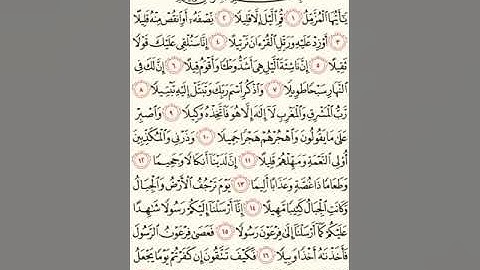 يَٰٓأَيُّهَا ٱلْمُزَّمِّلُ ١ قُمِ ٱلَّيْلَ إِلَّا قَلِيلًا ٢ نِّصْفَهُۥٓ أَوِ ٱنقُصْ مِنْهُ قَلِيلًا
٣ أَوْ زِدْ عَلَيْهِ وَرَتِّلِ ٱلْقُرْءَانَ تَرْتِيلًا ٤ إِنَّا سَنُلْقِى عَلَيْكَ قَوْلًا
ثَقِيلًا ٥ إِنَّ نَاشِئَةَ ٱلَّيْلِ هِىَ أَشَدُّ وَطْـًٔا وَأَقْوَمُ قِيلًا ٦ إِنَّ لَكَ فِى
ٱلنَّهَارِ سَبْحًا طَوِيلًا ٧ وَٱذْكُرِ ٱسْمَ رَبِّكَ وَتَبَتَّلْ إِلَيْهِ تَبْتِيلًا ٨
رَّبُّ ٱلْمَشْرِقِ وَٱلْمَغْرِبِ لَآ إِلَٰهَ إِلَّا هُوَ فَٱتَّخِذْهُ وَكِيلًا ٩ وَٱصْبِرْ
عَلَىٰ مَا يَقُولُونَ وَٱهْجُرْهُمْ هَجْرًا جَمِيلًا ١٠ وَذَرْنِى وَٱلْمُكَذِّبِينَ
أُو۟لِى ٱلنَّعْمَةِ وَمَهِّلْهُمْ قَلِيلًا ١١ إِنَّ لَدَيْنَآ أَنكَالًا وَجَحِيمًا ١٢
وَطَعَامًا ذَا غُصَّةٍ وَعَذَابًا أَلِيمًا ١٣ يَوْمَ تَرْجُفُ ٱلْأَرْضُ وَٱلْجِبَالُ
وَكَانَتِ ٱلْجِبَالُ كَثِيبًا مَّهِيلًا ١٤ إِنَّآ أَرْسَلْنَآ إِلَيْكُمْ رَسُولًا شَٰهِدًا
عَلَيْكُمْ كَمَآ أَرْسَلْنَآ إِلَىٰ فِرْعَوْنَ رَسُولًا ١٥ فَعَصَىٰ فِرْعَوْنُ ٱلرَّسُولَ
فَأَخَذْنَٰهُ أَخْذًا وَبِيلًا ١٦ فَكَيْفَ تَتَّقُونَ إِن كَفَرْتُمْ يَوْمًا يَجْعَلُ